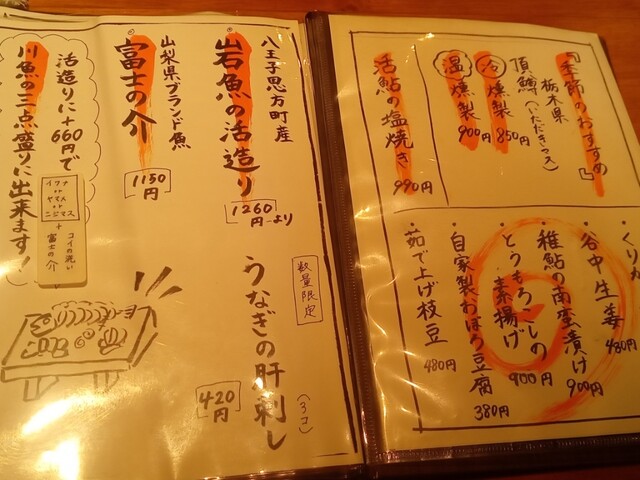 『季節のおすすめ』
栃木県
頂鱒(いただきマス)
冷 燻製 850円
温 燻製 900円
活鮎の塩焼き 990円
・くりか
・谷中生姜 480円
・稚鮎の南蛮漬け 900円
・とうもろこしの
素揚げ 900円
・自家製おぼろ豆腐 380円
・茹で上げ枝豆 480円
八王子恩方町産
岩魚の活造り
1260円より
山梨県ブランド魚
富士の介
1150円
活造りに+660円で
川魚の三点盛りに出来ます!
イワナ
or
ヤマメ
or
ニジマス
+
コイの洗い
富士の介
数量限定
うなぎの肝刺し
(3コ)
420円